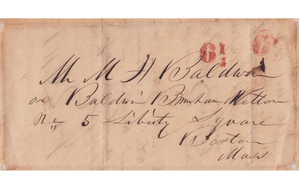 6¼
Mr M H Baldwin
or Baldwin Burnham Wetton
No 5 Liberty Square
Boston
Mass